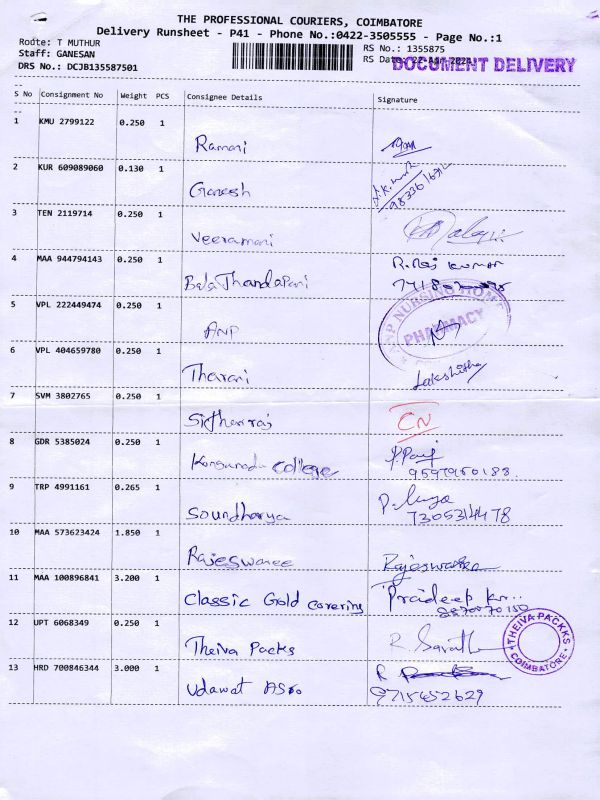 THE PROFESSIONAL COURIERS, COIMBATORE
Delivery Runsheet - P41 - Phone No.:0422-3505555 - Page No.:1
Route: T MUTHUR
Staff: GANESAN
DRS No.: DCJB135587501
RS No.: 1355875
RS Date:
DOCUMENT DELIVERY
S No Consignment No Weight PCS Consignee Details Signature
1 KMU 2799122 0.250 1
Ramani
2 KUR 609089060 0.130 1
Ganesh
3 TEN 2119714 0.250 1
Veeramani
4 MAA 944794143 0.250 1
BalaThandapani R. Raj kumar
5 VPL 222449474 0.250 1
ANP
NP NURSING HOME
PHARMACY
6 VPL 404659780 0.250 1
Tharani Lakshitha
7 SVM 3802765 0.250 1
CN
8 GDR 5385024 0.250 1
Kongunadu College
9597950188
9 TRP 4991161 0.265 1
Soundharya
7305314478
10 MAA 573623424 1.850 1
Rajeswaree Rajeswaree
11 MAA 100896841 3.200 1
Classic Gold covering Pradeep Kr..
12 UPT 6068349 0.250 1
Theiva Packs R. Sarath
THEIVA PACKKS
COIMBATORE
13 HRD 700846344 3.000 1
Udawat Asso R
9715452629